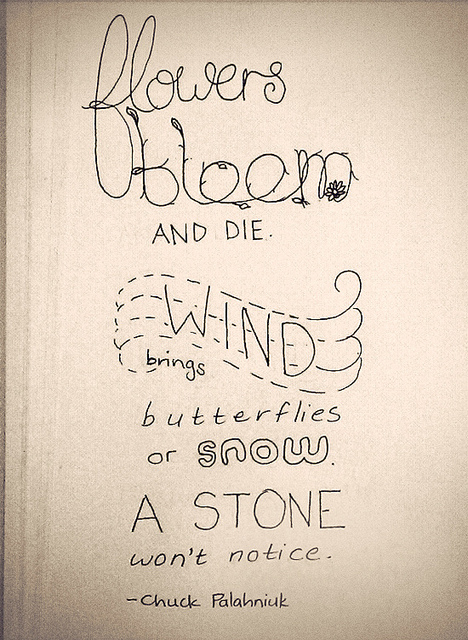 flowers
bloom
AND DIE.
WIND
brings
butterflies
or snow.
A STONE
won't notice.
-Chuck Palahniuk